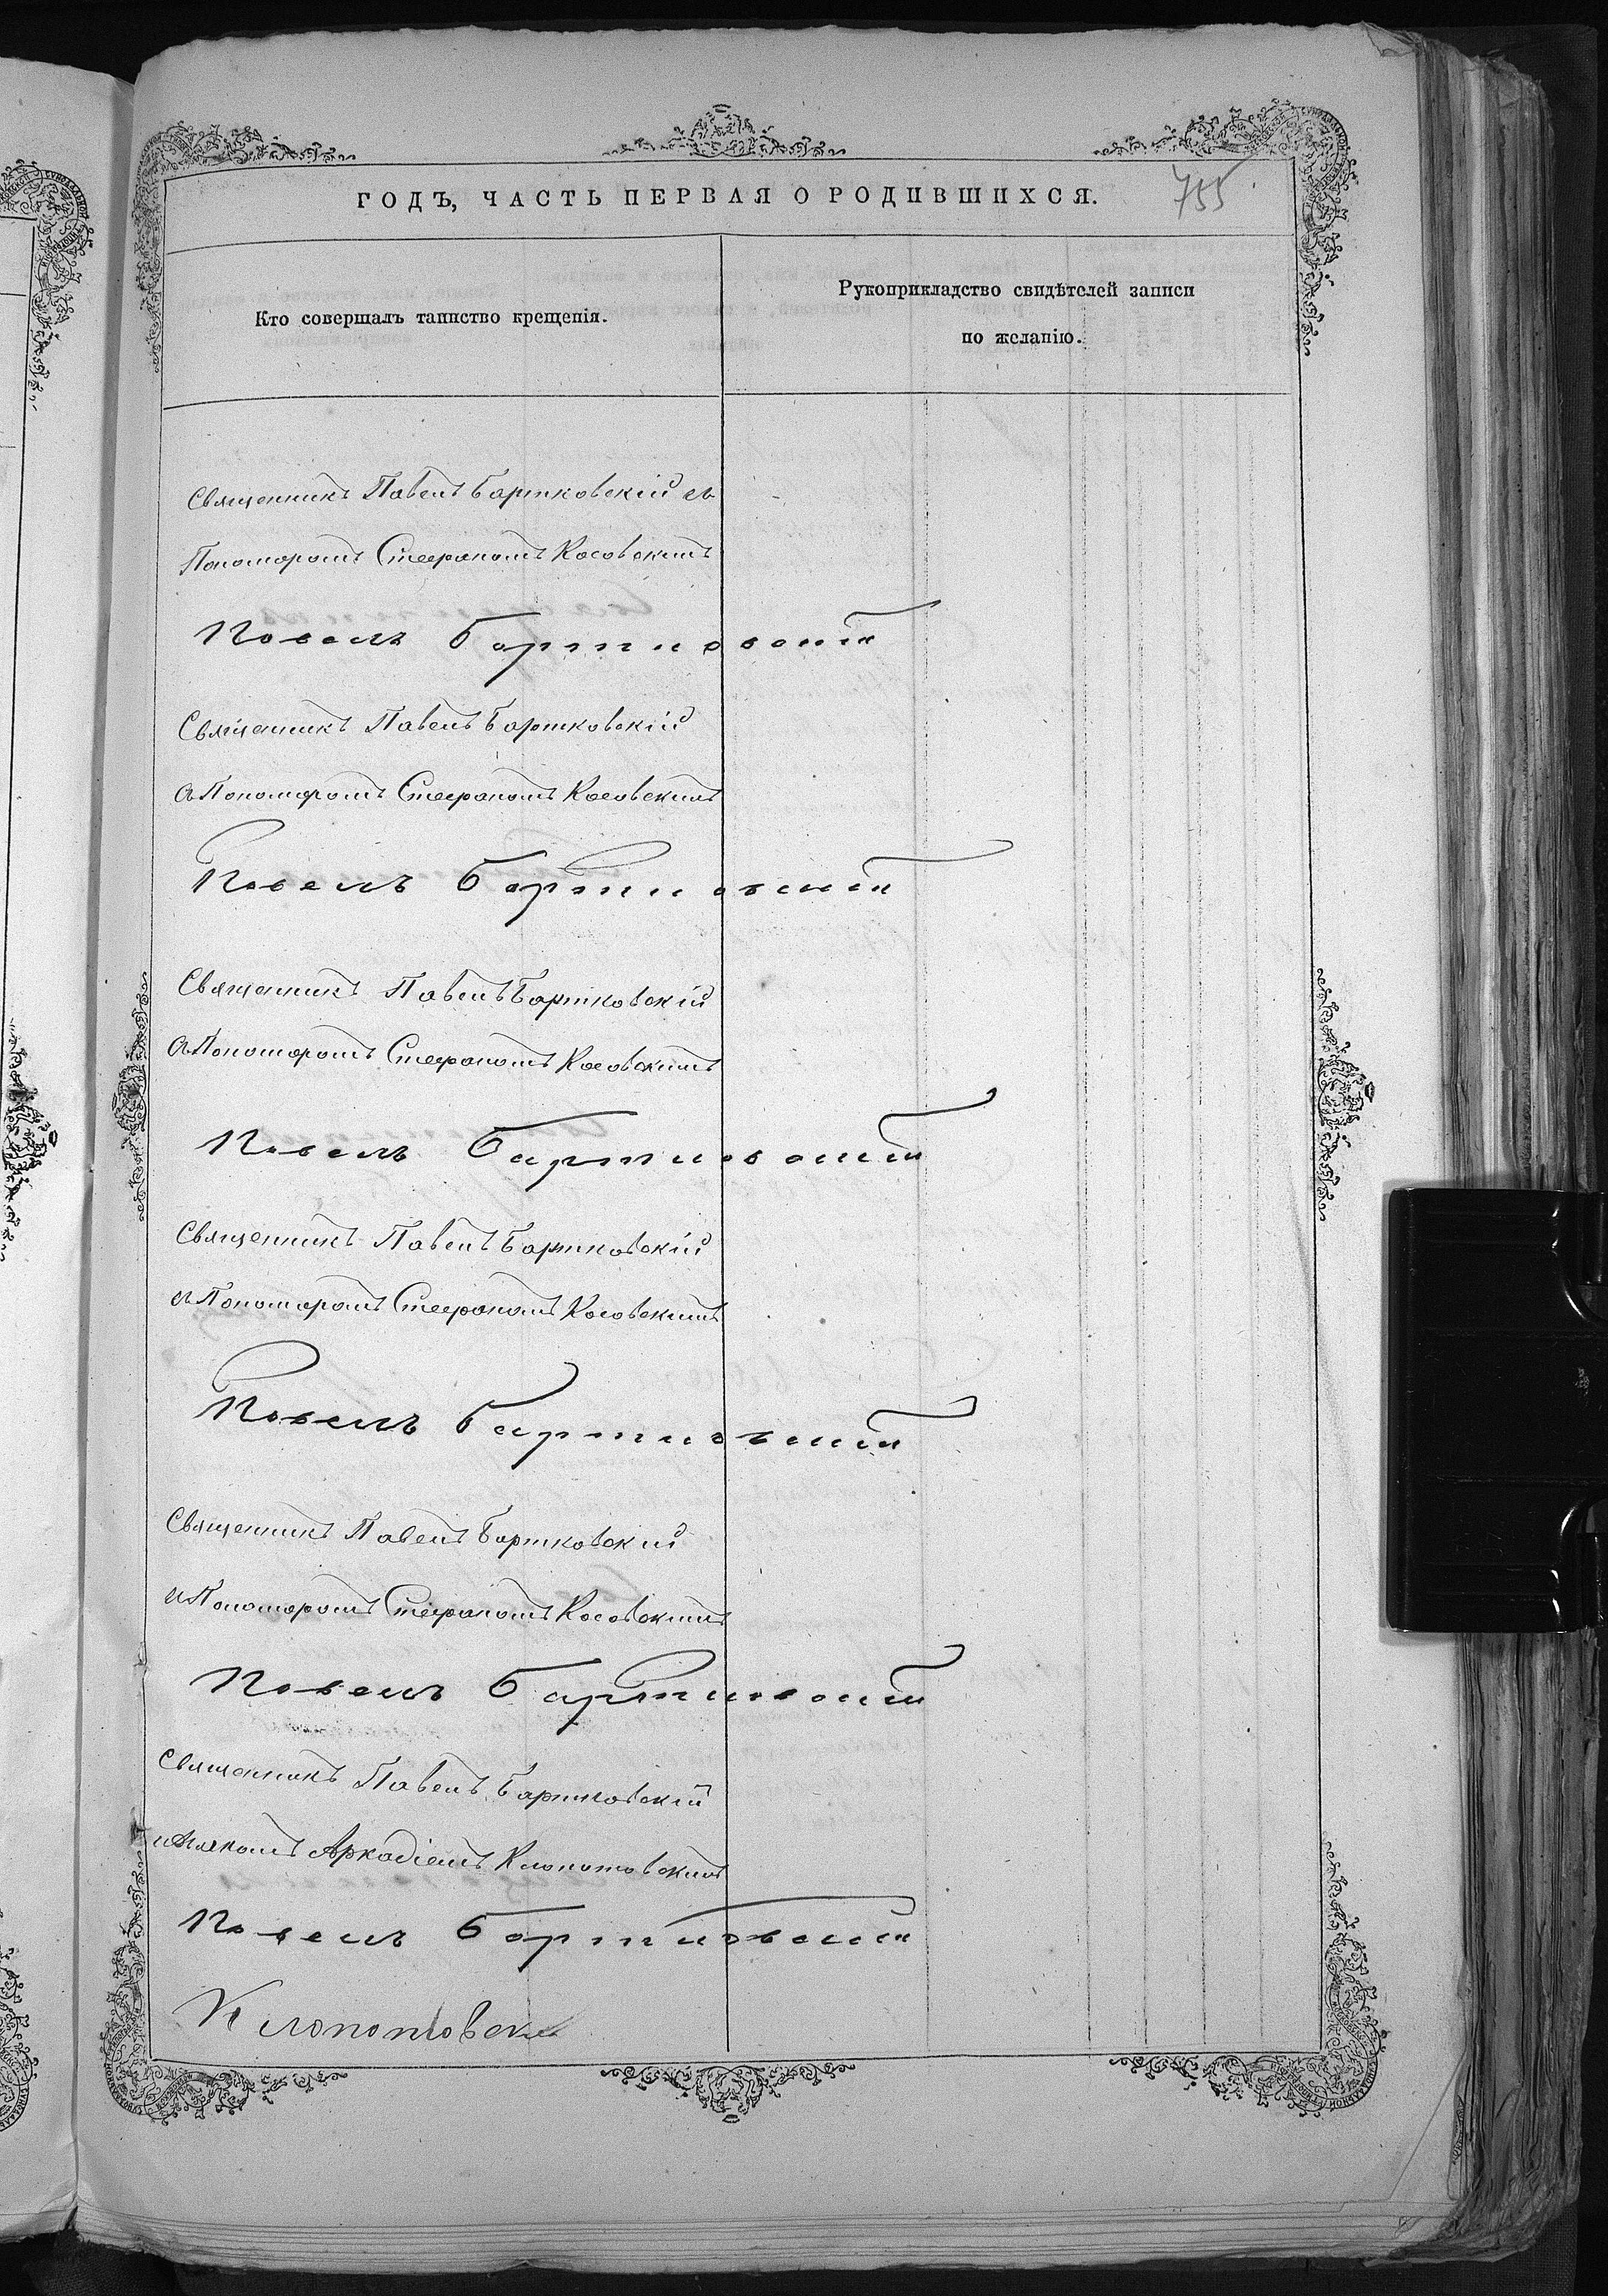 ГОДЪ, ЧАСТЬ ПЕРВАЯ О РОДИВШИХСЯ.
755
Кто совершалъ таинство крещенія.
Рукоприкладство свидѣтелей записи
по желанію.
Священникъ Павелъ Бартковскій съ
Пономоромъ Стефаномъ Косовскимъ
Павелъ Бартковскій
Священникъ Павелъ Бартковскій
съ Пономоромъ Стефаномъ Косовскимъ
Павелъ Бартковскій
Священникъ Павелъ Бартковскій
съ Пономоромъ Стефаномъ Косовскимъ
Павелъ Бартковскій
Священникъ Павелъ Бартковскій
съ Пономоромъ Стефаномъ Косовскимъ
Павелъ Бартковскій
Священникъ Павелъ Бартковскій
и Пономоромъ Стефаномъ Косовскимъ
Павелъ Бартковскій
Священникъ Павелъ Бартковскій
Аркадіемъ Клопотовскимъ
Павелъ Бартковскій